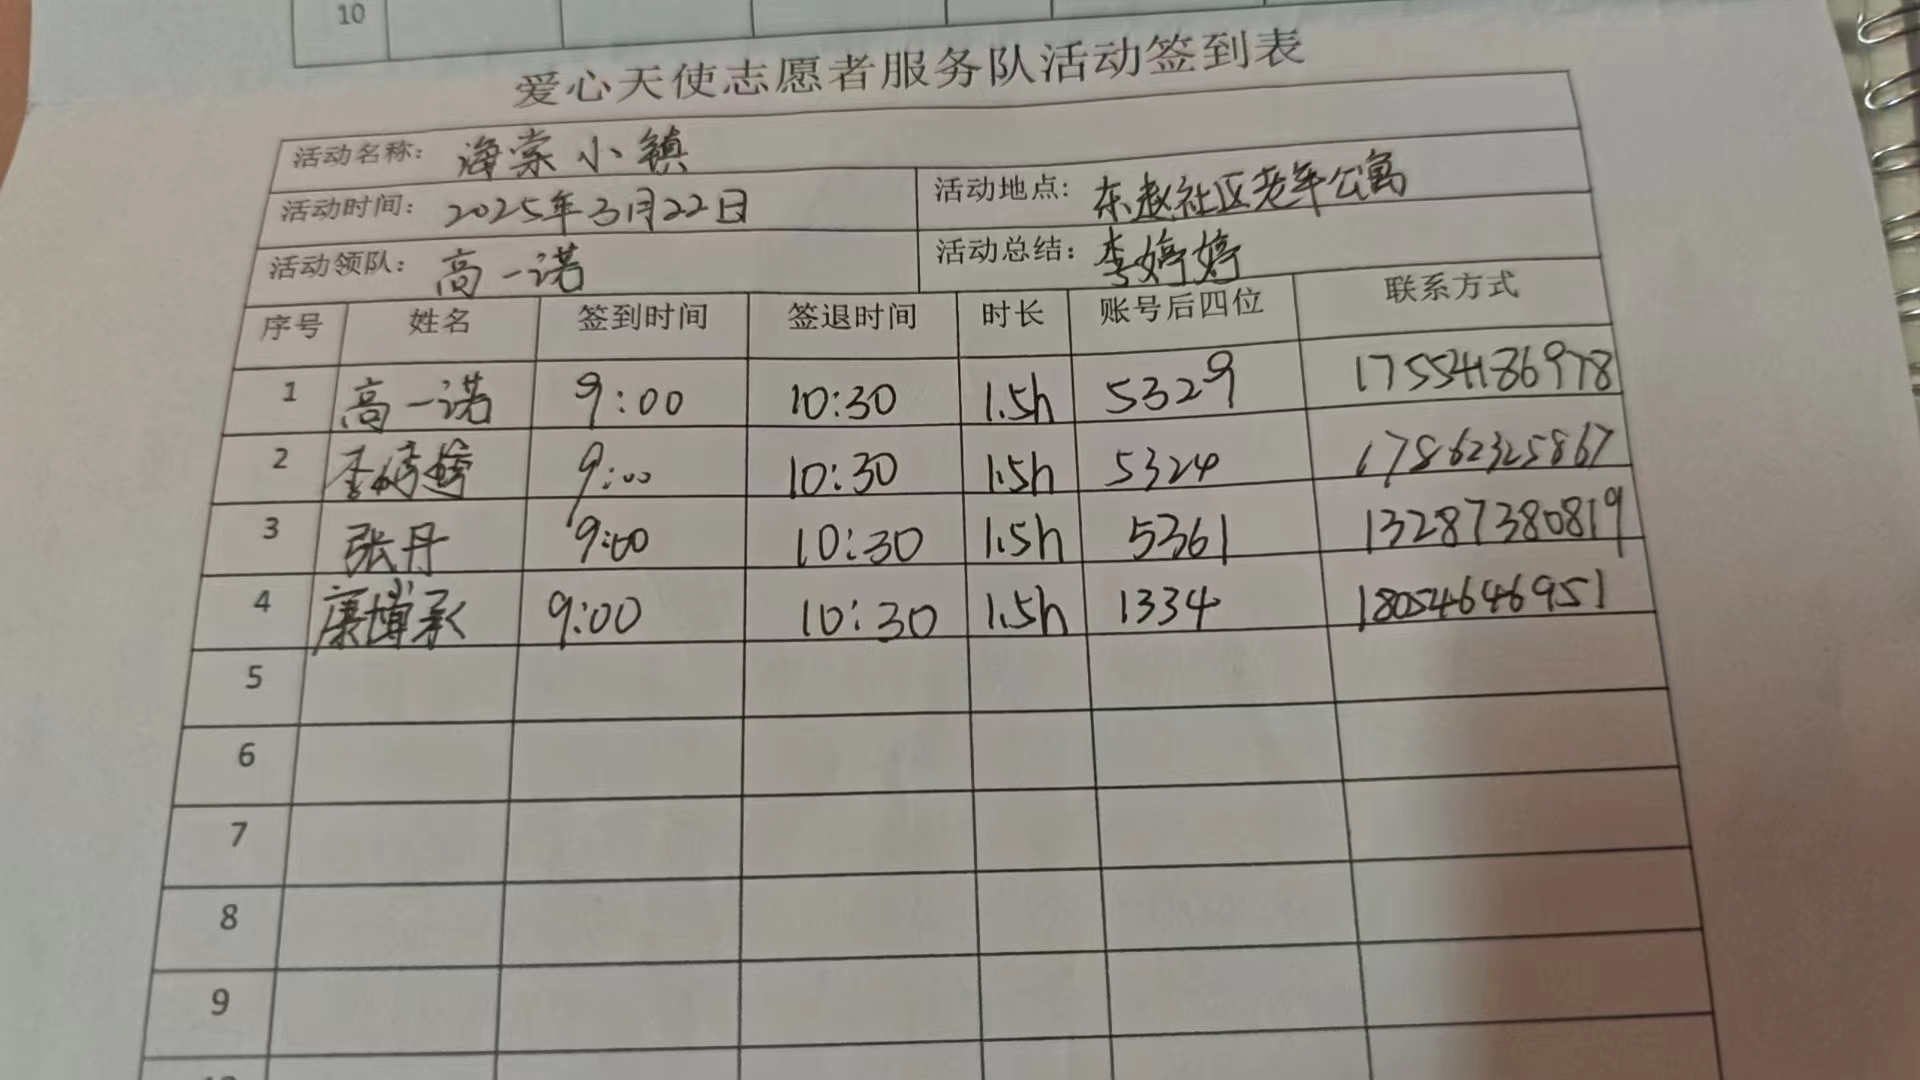 10
爱心天使志愿者服务队活动签到表
活动名称: 海棠小镇
活动时间: 2025年3月22日 活动地点: 东赵社区老年公寓
活动领队: 高一诺 活动总结: 李婷婷
序号 姓名 签到时间 签退时间 时长 账号后四位 联系方式
1 高一诺 9:00 10:30 1.5h 5329 17554186978
2 李婷婷 9:00 10:30 1.5h 5324 17862325867
3 张丹 9:00 10:30 1.5h 5361 13287380819
4 康博承 9:00 10:30 1.5h 1334 18054646951
5
6
7
8
9